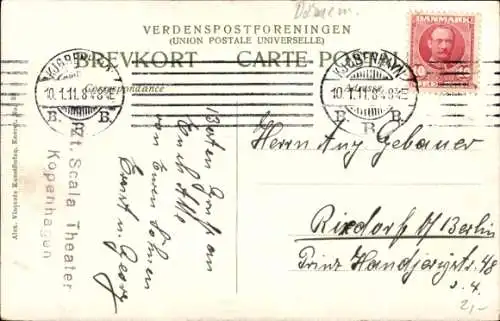 Dänem.
VERDENSPOSTFORENINGEN
(UNION POSTALE UNIVERSELLE)
BREVKORT CARTE POSTALE
DANMARK
KJØBENHAVN
10.1.11. 8
B. B.
KJØBENHAVN
10.1.11. 8
B. B.
Correspondance
Adresse
Besten Gruß an
Euch Alle
von Euren Söhnen
Ernst u. Georg
Herrn Aug Gebauer
Rixdorf b/ Berlin
Prinz Handjerystr. 48
2,-
Scala Theater
Kopenhagen
Alex. Vincents Kunstforlag,